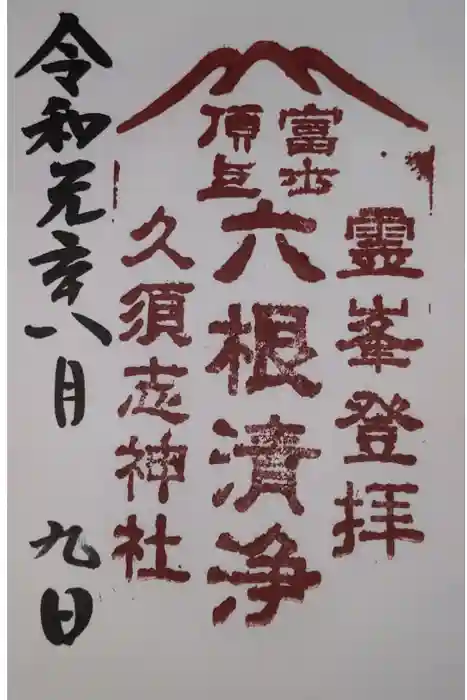 富士
頂上
靈峯登拝
六根清浄
久須志神社
令和元年八月九日